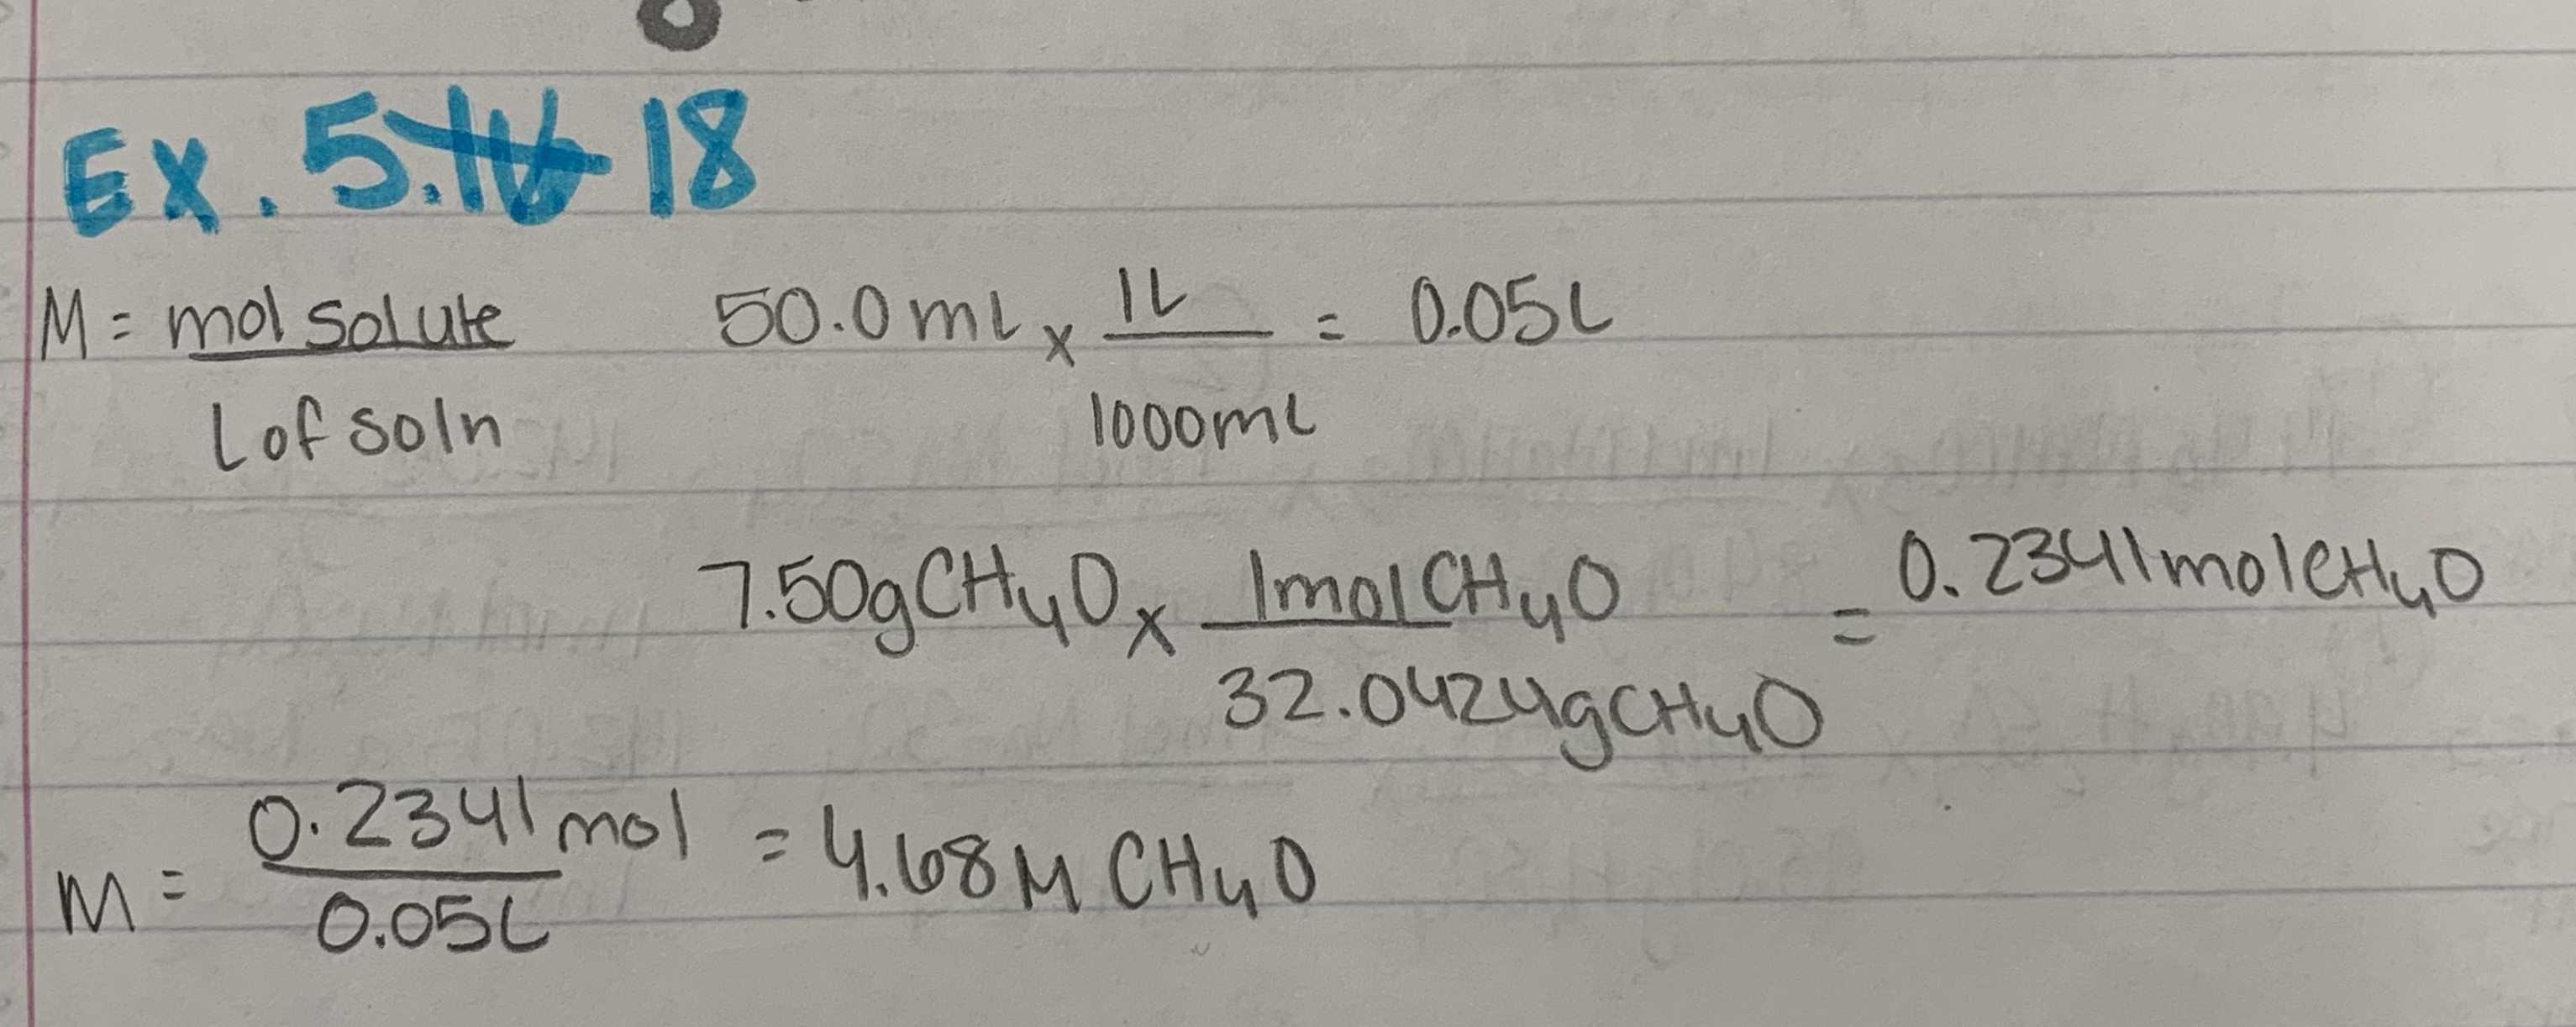 Ex. 5.16 18
M = mol solute / L of soln 50.0 mL x 1L / 1000mL = 0.05L
7.50g CH₄O x 1mol CH₄O / 32.0424g CH₄O = 0.2341 mol CH₄O
M = 0.2341 mol / 0.05L = 4.68 M CH₄O